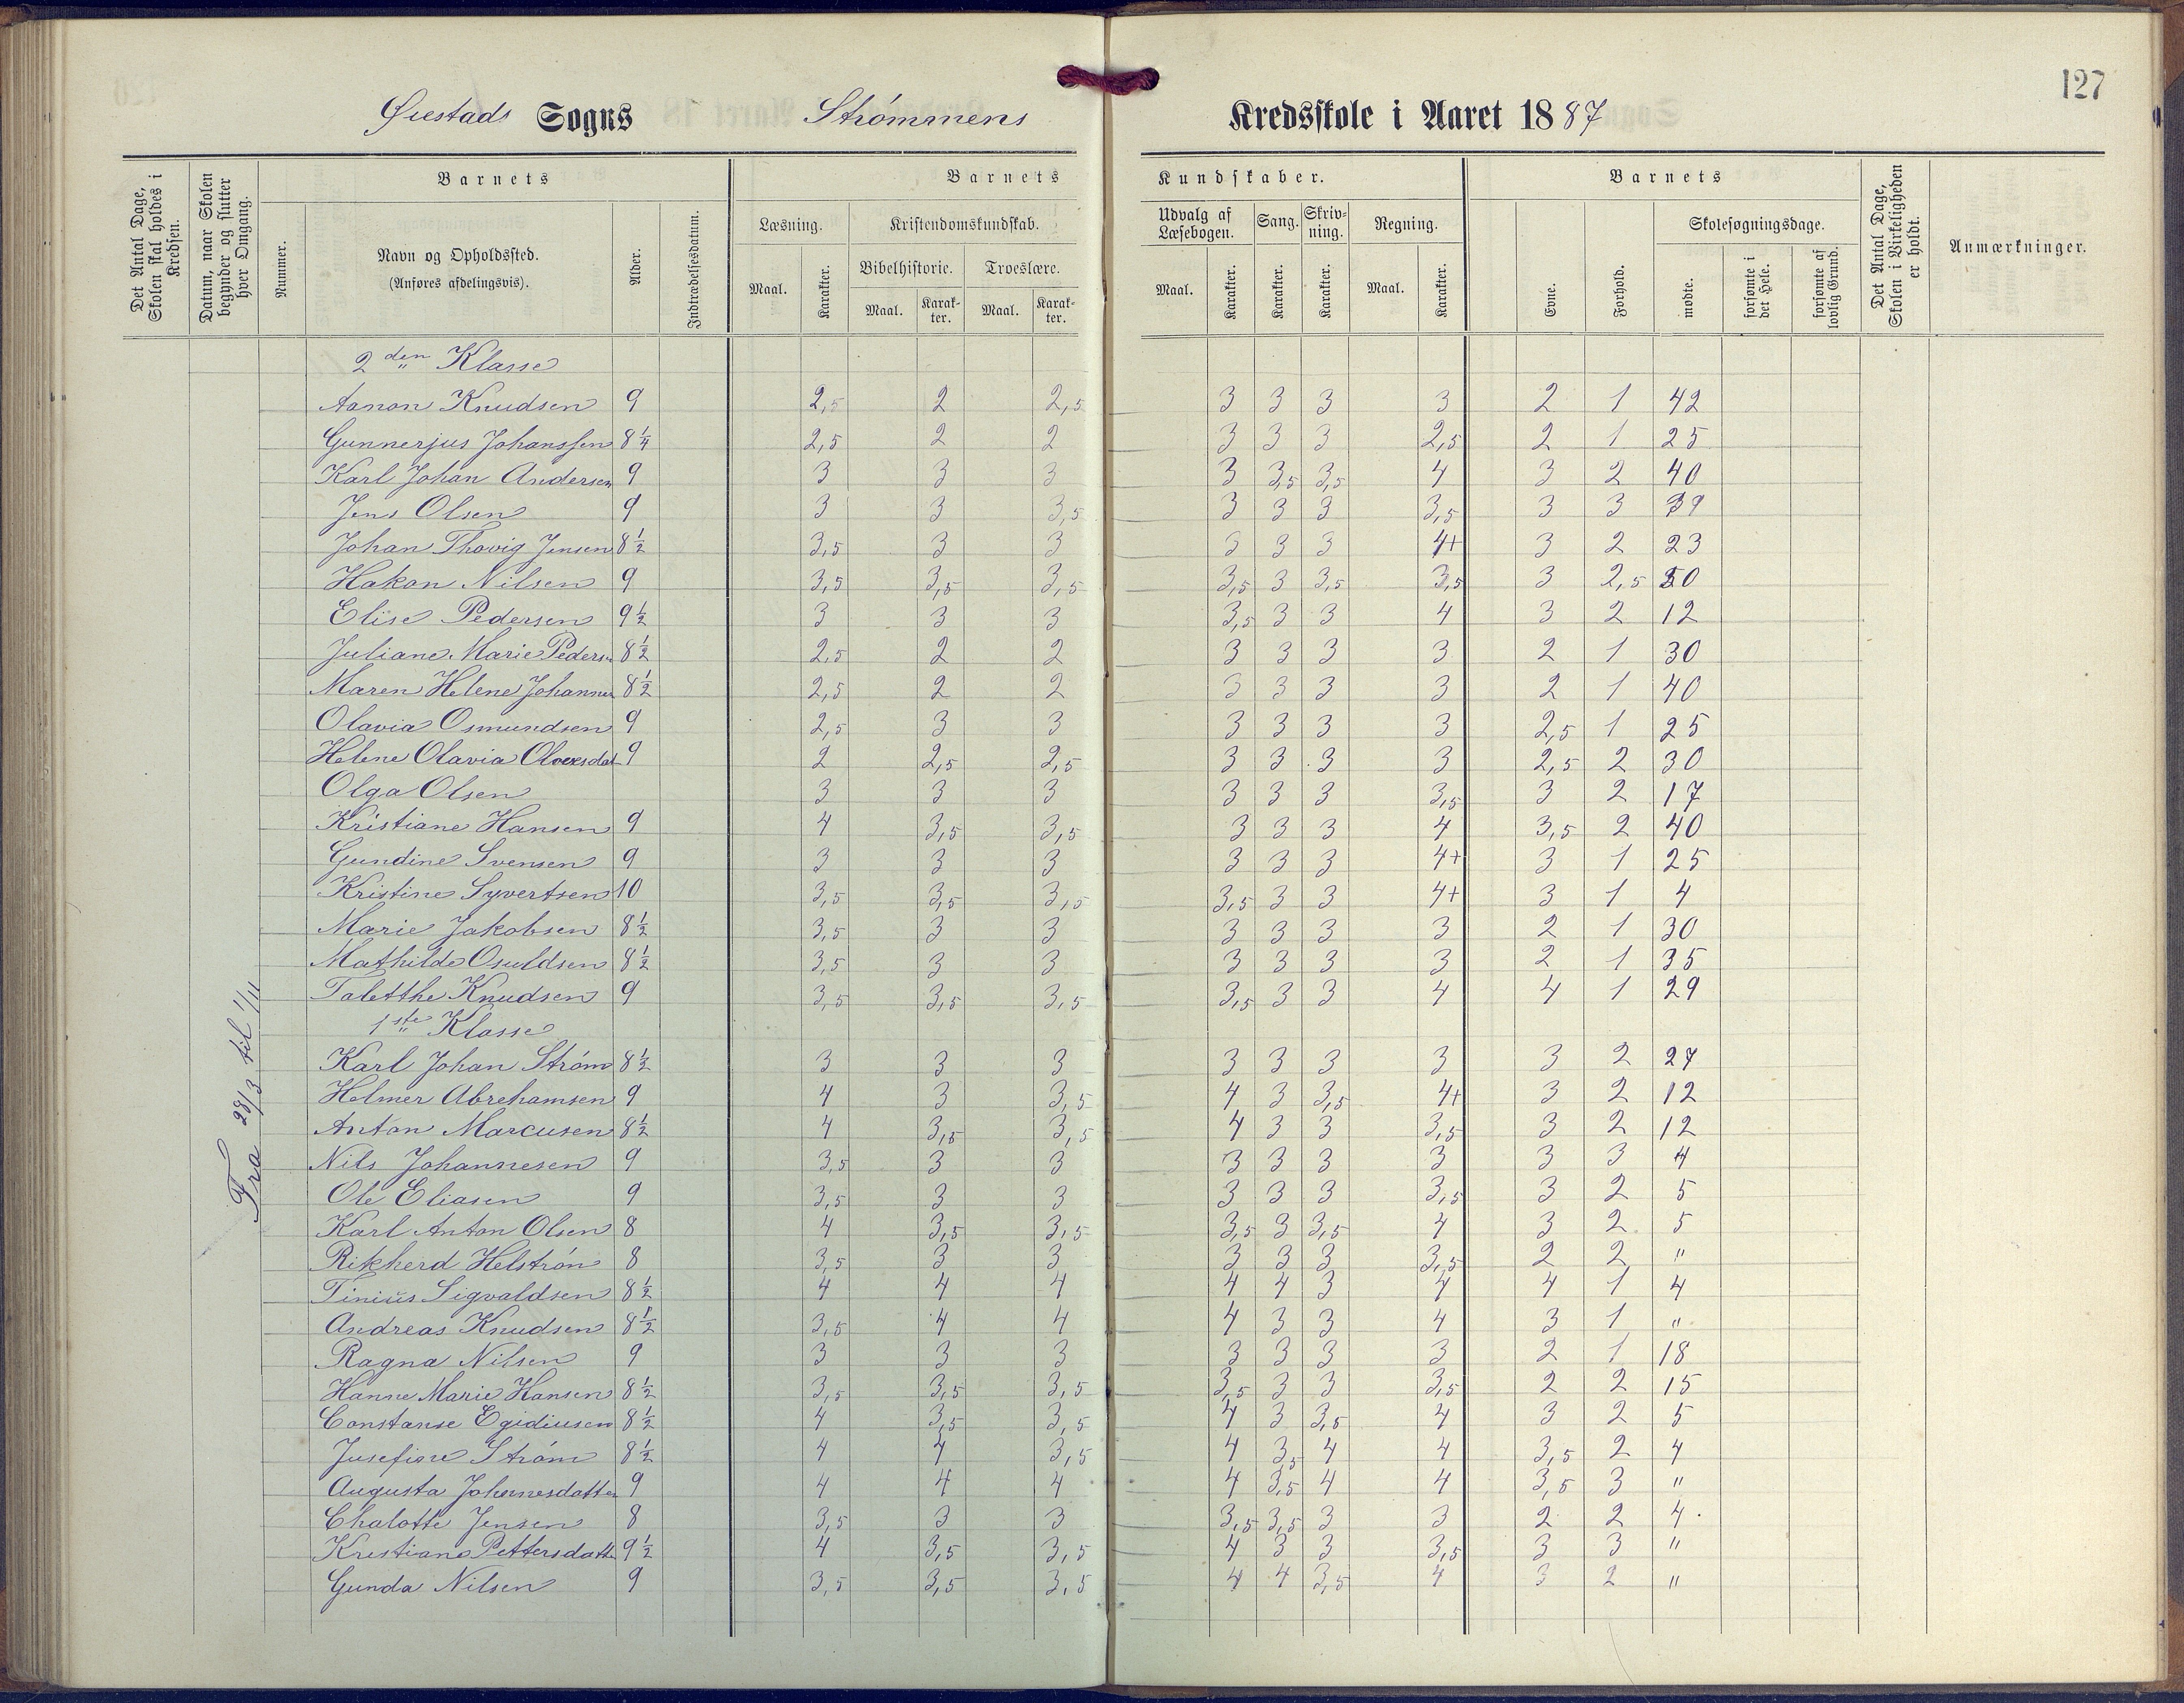 127
Øiestads Sogns Strømmens Kredsskole i Aaret 1887
Det Antal Dage, Skolen skal holdes i Kredsen.
Datum, naar Skolen begynder og slutter hver Omgang.
Barnets
Nummer.
Navn og Opholdssted.
(Anføres afdelingsvis).
Alder.
Indtrædelsesdatum.
Barnets Kundskaber.
Læsning.
Maal.
Karakter.
Kristendomskundskab.
Bibelhistorie.
Maal.
Karakter.
Troeslære.
Maal.
Karakter.
Udvalg af Læsebogen.
Maal.
Karakter.
Sang.
Karakter.
Skrivning.
Karakter.
Regning.
Maal.
Karakter.
Barnets
Evne.
Forhold.
Skolesøgningsdage.
mødte.
forsømte i det Hele.
forsømte af lovlig Grund.
Det Antal Dage, Skolen i Virkeligheden er holdt.
Anmærkninger.
Fra 28/3 til 1/11
2den Klasse
Aanon Knudsen 9 2,5 2 2,5 3 3 3 3 2 1 42
Gunnerjus Johanssen 8 1/4 2,5 2 2 3 3 3 2,5 2 1 25
Karl Johan Andersen 9 3 3 3 3 3,5 3,5 4 3 2 40
Jens Olsen 9 3 3 3,5 3 3 3 3,5 3 3 39
Johan Thovig Jensen 8 1/2 3,5 3 3 3 3 3 4+ 3 2 23
Hakon Nilsen 9 3,5 3,5 3,5 3,5 3 3,5 3,5 3 2,5 50
Elise Pedersen 9 1/2 3 3 3 3,5 3 3 4 3 2 12
Juliane Marie Pedersn 8 1/2 2,5 2 2 3 3 3 3 2 1 30
Maren Helene Johannes 8 1/2 2,5 2 2 3 3 3 3 2 1 40
Olavia Osmundsen 9 2,5 3 3 3 3 3 3 2,5 1 25
Helene Olavia 9 2 2,5 2,5 3 3 3 3 2,5 2 30
Olga Olsen 3 3 3 3 3 3 3,5 3 2 17
Kristiane Hansen 9 4 3,5 3,5 3 3 3 4 3,5 2 40
Gundine Svensen 9 3 3 3 3 3 3 4+ 3 1 25
Kristine Syvertsen 10 3,5 3,5 3,5 3,5 3 3 4+ 3 1 4
Marie Jakobsen 8 1/2 3,5 3 3 3 3 3 3 2 1 30
Mathilde Osuldsen 8 1/2 3,5 3 3 3 3 3 3 2 1 35
Taletthe Knudsen 9 3,5 3,5 3,5 3,5 3 3 4 4 1 29
1ste Klasse
Karl Johan Strøm 8 1/2 3 3 3 3 3 3 3 3 2 27
Helmer Abrehamsen 9 4 3 3,5 4 3 3,5 4+ 3 2 12
Anton Marcusen 8 1/2 4 3,5 3,5 4 3 3 3,5 3 2 12
Nils Johannesen 9 3,5 3 3 3 3 3 3 3 3 4
Ole Eliasen 9 3,5 3 3 3 3 3 3,5 3 2 5
Karl Anton Olsen 8 4 3,5 3,5 3,5 3 3,5 4 3 2 5
Rikherd Helstrøn 8 3,5 3 3 3 3 3 3,5 2 2 "
Tinius Sigvaldsen 8 1/2 4 4 4 4 4 3 4 4 1 4
Andreas Knudsen 8 1/2 3,5 4 4 4 3 3 4 3 1 "
Ragna Nilsen 9 3 3 3 3 3 3 3 2 1 18
Hanne Marie Hansen 8 1/2 3,5 3,5 3,5 3,5 3 3 3,5 2 2 15
Constanse Egidiusen 8 1/2 4 3,5 3,5 4 3 3,5 4 3 2 5
Jusefine Strøm 8 1/2 4 4 3,5 4 3,5 4 4 3,5 2 4
Augusta Johannesdatter 9 4 4 4 4 3,5 4 4 3,5 3 "
Chalotte Jensen 8 3,5 3 3 3,5 3,5 3 3 2 2 4
Krestiane Pettersdatt 9 1/2 4 3,5 3,5 4 3 3 3,5 3 3 "
Gunda Nilsen 9 3,5 3,5 3,5 4 4 3,5 4 3 2 "